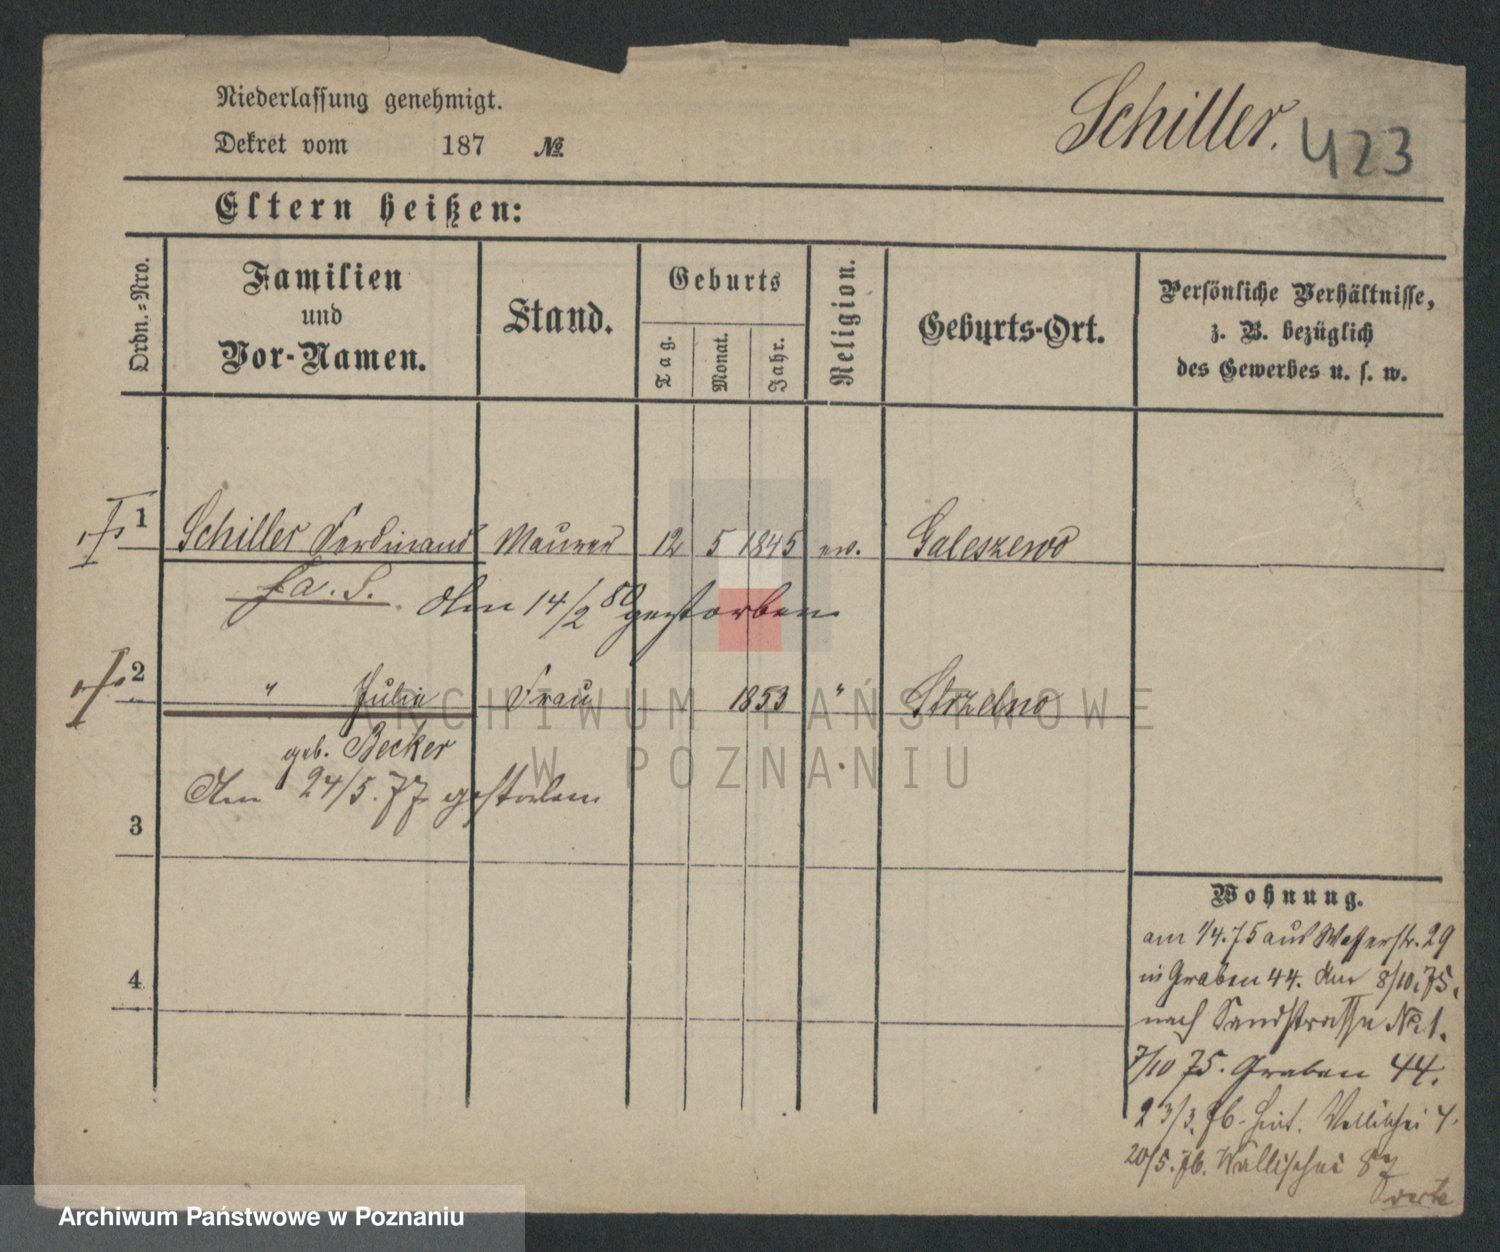 Niederlassung genehmigt.
Dekret vom 187 №
Schiller. 423
Eltern heißen:
Ordn.-Nro.
Familien
und
Vor-Namen.
Stand.
Geburts
Tag.
Monat.
Jahr.
Religion.
Geburts-Ort.
Persönliche Verhältnisse,
z. B. bezüglich
des Gewerbes u. s. w.
1 Schiller Ferdinand Maurer 12 5 1845 ev. Galeszewo
fa. S. Am 14/2 80 gestorben
2 " Julie Frau 1853 " Strzelno
geb. Becker
Am 24/5. 77 gestorben
3
4
Wohnung.
am 1/4.75 aus Wasserstr. 29
in Graben 44. Am 8/10.75.
nach Sandstrasse No 1.
7/10 75. Graben 44.
23/3. 76. Hint. Wallischei 7.
20/5. 76. Wallischei 87
verte
ARCHIWUM PAŃSTWOWE
W POZNANIU
Archiwum Państwowe w Poznaniu